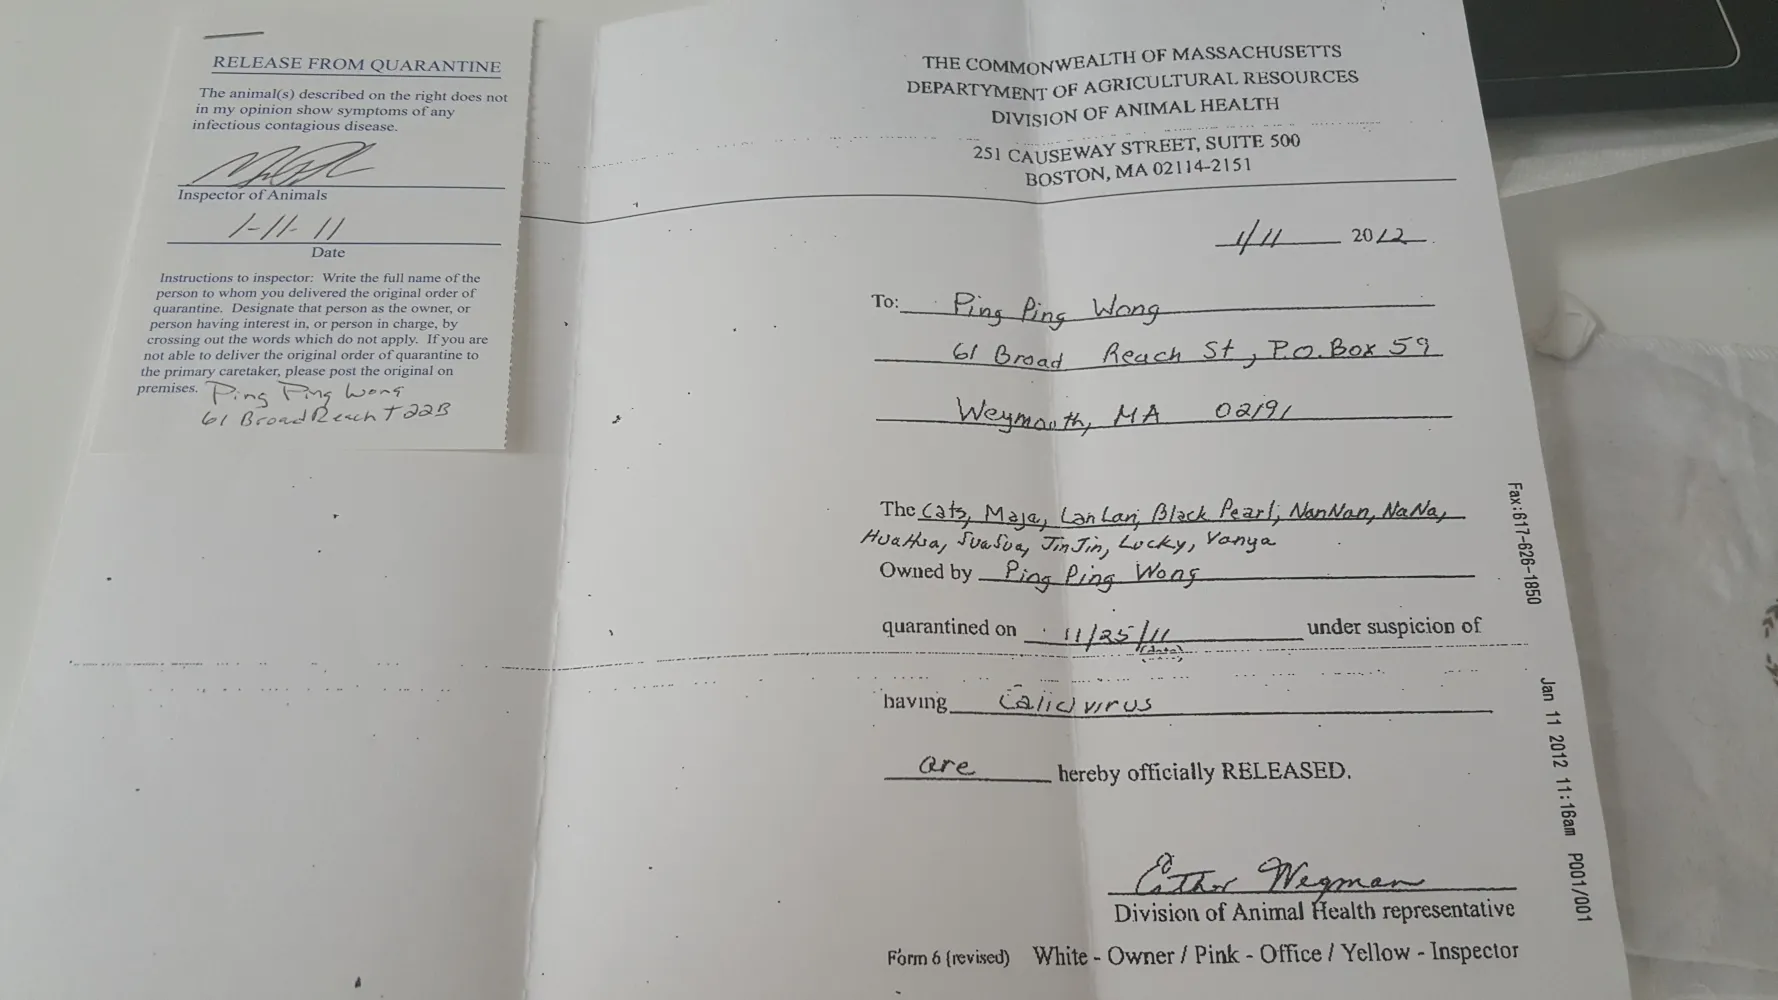 RELEASE FROM QUARANTINE
The animal(s) described on the right does not
in my opinion show symptoms of any
infectious contagious disease.
Inspector of Animals
1-11-11
Date
Instructions to inspector: Write the full name of the
person to whom you delivered the original order of
quarantine. Designate that person as the owner, or
person having interest in, or person in charge, by
crossing out the words which do not apply. If you are
not able to deliver the original order of quarantine to
the primary caretaker, please post the original on
premises. Ping Ping Wong
61 Broad Reach T22B
THE COMMONWEALTH OF MASSACHUSETTS
DEPARTYMENT OF AGRICULTURAL RESOURCES
DIVISION OF ANIMAL HEALTH
251 CAUSEWAY STREET, SUITE 500
BOSTON, MA 02114-2151
1/11 2012
To: Ping Ping Wong
61 Broad Reach St, P.O. Box 59
Weymouth, MA 02191
The Cats, Maja, LanLan, Black Pearl, NanNan, NaNa,
HuaHua, SuaSua, JinJin, Lucky, Vanya
Owned by Ping Ping Wong
quarantined on 11/25/11 under suspicion of
(date)
having Calicivirus
are hereby officially RELEASED.
Esther Wegman
Division of Animal Health representative
Form 6 (revised) White - Owner / Pink - Office / Yellow - Inspector
Fax:617-626-1850 Jan 11 2012 11:16am P001/001